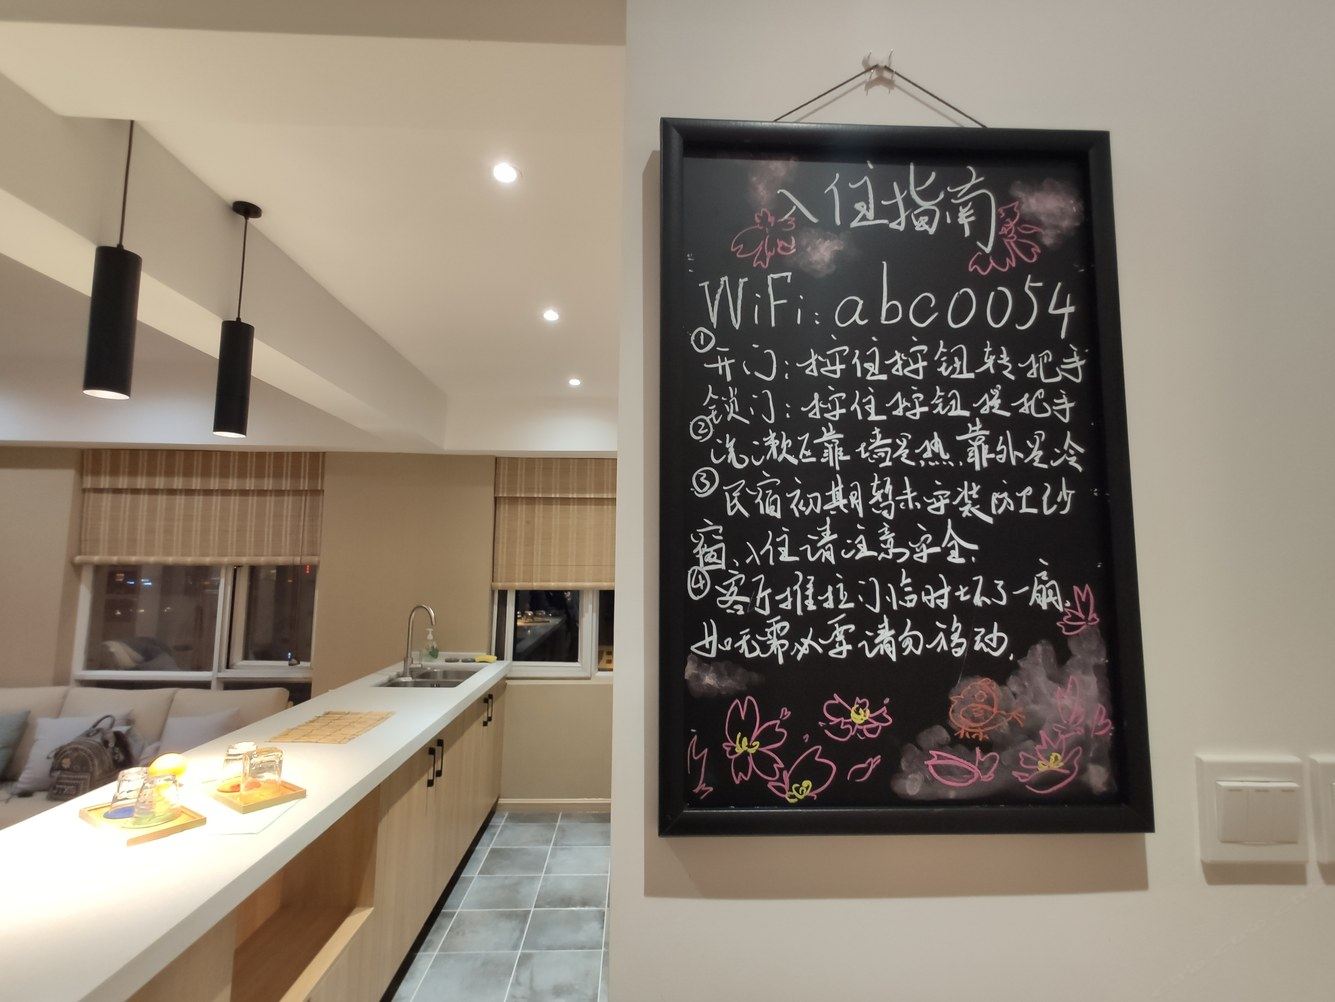 入住指南
WiFi:abc0054
①开门:按住按钮转把手
锁门:按住按钮提把手
②洗漱区靠墙是热,靠外是冷
③民宿初期暂未安装防卫纱
窗,入住请注意安全.
④客厅推拉门临时坏了一扇,
如无需必要请勿移动.